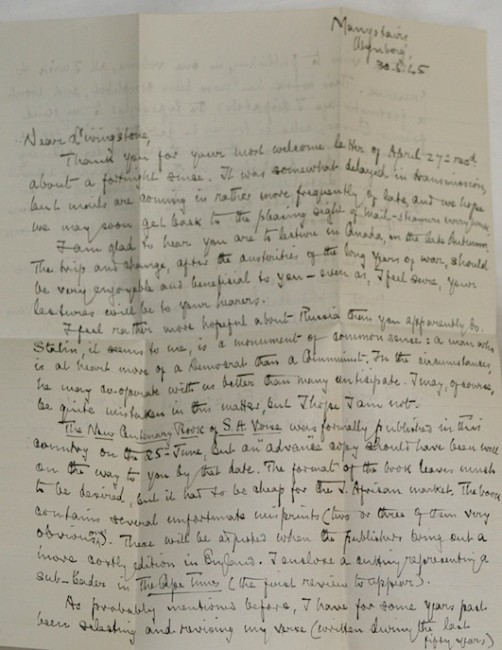 Manystairs,
Wynberg.
30.6.45
Dear Dr Livingstone,
Thank you for your most welcome letter of April 27 recd
about a fortnight since. It was somewhat delayed in transmission,
but mails are coming in rather more frequently of late, and we hope
we may soon get back to the pleasing sight of mail-steamers every week.
I am glad to hear you are to lecture in Canada, in the late Autumn.
The trip and change, after the austerities of the long years of war, should
be very enjoyable and beneficial to you – even as, I feel sure, your
lectures will be to your hearers.
I feel rather more hopeful about Russia than you apparently do.
Stalin, it seems to me, is a monument of common sense: a man who
is at heart more of a Democrat than a Communist. In the circumstances
he may co-operate with us better than many anticipate. I may, of course,
be quite mistaken in this matter, but I hope I am not.
The New Centenary Book of S.A. Verse was formally published in this
country on the 25th June, but an "advance" copy should have been well
on the way to you by that date. The format of the book leaves much
to be desired, but it had to be cheap for the S. African market. The book
contains several unfortunate misprints (two or three of them very
obvious). These will be adjusted when the publishers bring out a
more costly edition in England. I enclose a cutting representing a
sub-leader in The Cape Times (the first review to appear).
As probably mentioned before, I have for some years past
been selecting and revising my verse (written during the last
fifty years)